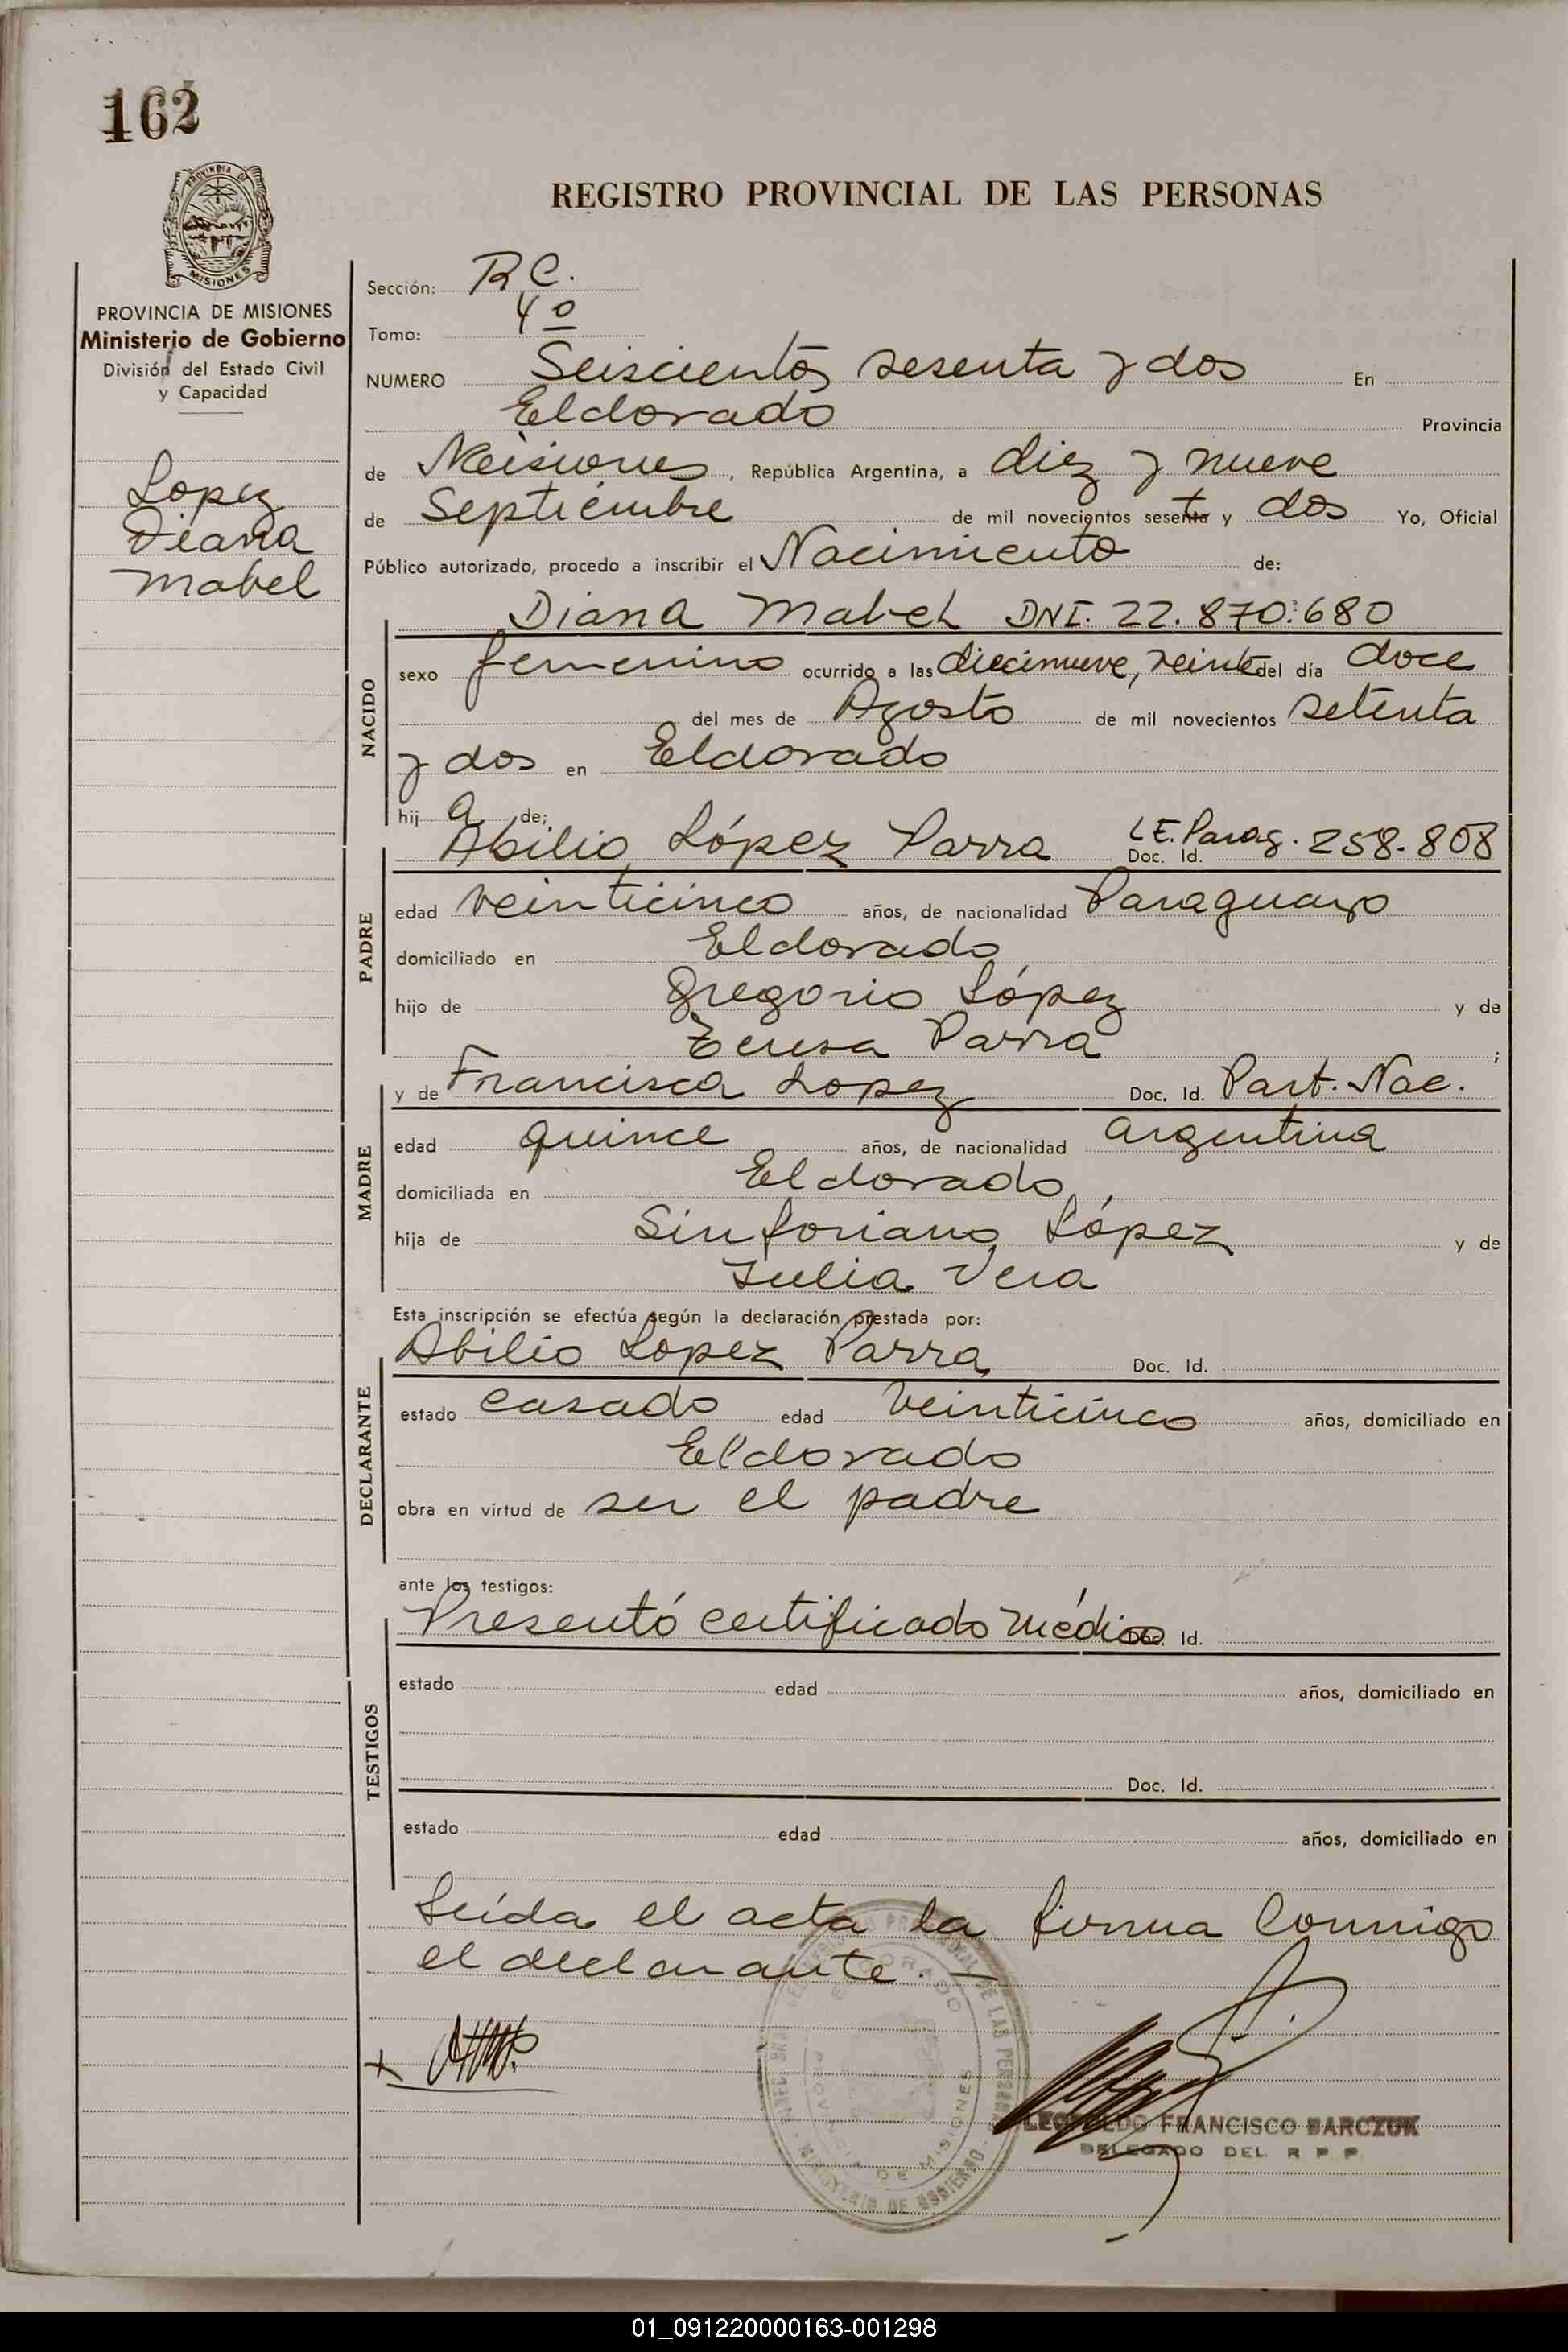 162
REGISTRO PROVINCIAL DE LAS PERSONAS
PROVINCIA DE
MISIONES
PROVINCIA DE MISIONES
Ministerio de Gobierno
División del Estado Civil
y Capacidad
Lopez
Diana
Mabel
Sección: R C.
Tomo: 4º
NUMERO Seiscientos sesenta y dos En
Eldorado Provincia
de Misiones, República Argentina, a diez y nueve
de Septiembre de mil novecientos sesenta y dos Yo, Oficial
Público autorizado, procedo a inscribir el Nacimiento de:
Diana Mabel DNI. 22.870.680
NACIDO
sexo femenino ocurrido a las diecinueve, veinte del día doce
del mes de Agosto de mil novecientos setenta
y dos en Eldorado
hij a de:
Abilio López Parra Doc. Id. L.E. Parag. 258.808
PADRE
edad veinticinco años, de nacionalidad Paraguayo
domiciliado en Eldorado
hijo de Gregorio López y de
Teresa Parra ;
y de Francisca Lopez Doc. Id. Part. Nac.
MADRE
edad quince años, de nacionalidad argentina
domiciliada en Eldorado,
hija de Sinforiano López y de
Julia Vera
Esta inscripción se efectúa según la declaración prestada por:
Abilio Lopez Parra Doc. Id.
DECLARANTE
estado casado edad veinticinco años, domiciliado en
Eldorado
obra en virtud de ser el padre
ante los testigos:
Presentó certificado médico Doc. Id.
TESTIGOS
estado edad años, domiciliado en
Doc. Id.
estado edad años, domiciliado en
Leída el acta la firma conmigo
el declarante. —
ELDORADO
PROVINCIA DE MISIONES
MINISTERIO DE GOBIERNO
LEOPOLDO FRANCISCO BARCZUK
DELEGADO DEL R P P
01_091220000163-001298